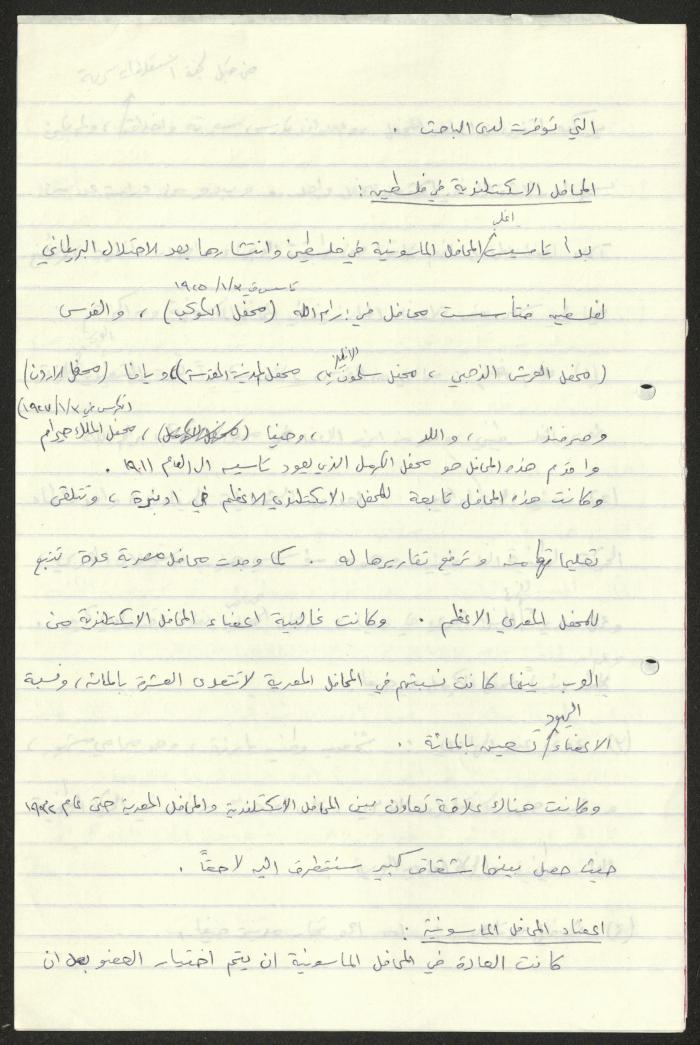 التي توفرت لدى الباحث .
المحافل الاسكتلندية في فلسطين :
اغلب
بدأ تأسيس / المحافل الماسونية في فلسطين وانتشارها بعد الاحتلال البريطاني
تأسس في ١/٣/ ١٩٢٥
لفلسطين فتأسست محافل في : رام الله ( محفل الكوكب ) ، والقدس
( محفل العرش الذهبي ، محفل سليمون ، محفل المدينة المقدسة ) ويافا ( محفل الاردن )
وصرفند ، واللد ، وحيفا ( محفل الكرمل ) ، محفل الملك حيرام
واقدم هذه المحافل هو محفل الكرمل الذي يعود تأسيسه الى العام ١٩١١ .
وكانت هذه المحافل تابعة للمحفل الاسكتلندي الاعظم في ادنبرة ، وتتلقى
تعليماتها منه وترفع تقاريرها له . كما وجدت محافل مصرية عدة تتبع
للمحفل المصري الاعظم . وكانت غالبية اعضاء المحافل الاسكتلندية من
العرب بينما كانت نسبتهم في المحافل المصرية لا تتعدى العشرة بالمائة ، ونسبة
اليهود
الاعضاء / تسعين بالمائة .
وكانت هناك علاقة تعاون بين المحافل الاسكتلندية والمحافل المصرية حتى عام ١٩٣٢
حيث حصل بينهما شقاق كبير سنتطرق اليه لاحقاً .
اعضاء المحافل الماسونية :
كانت العادة في المحافل الماسونية ان يتم اختيار العضو بعد ان